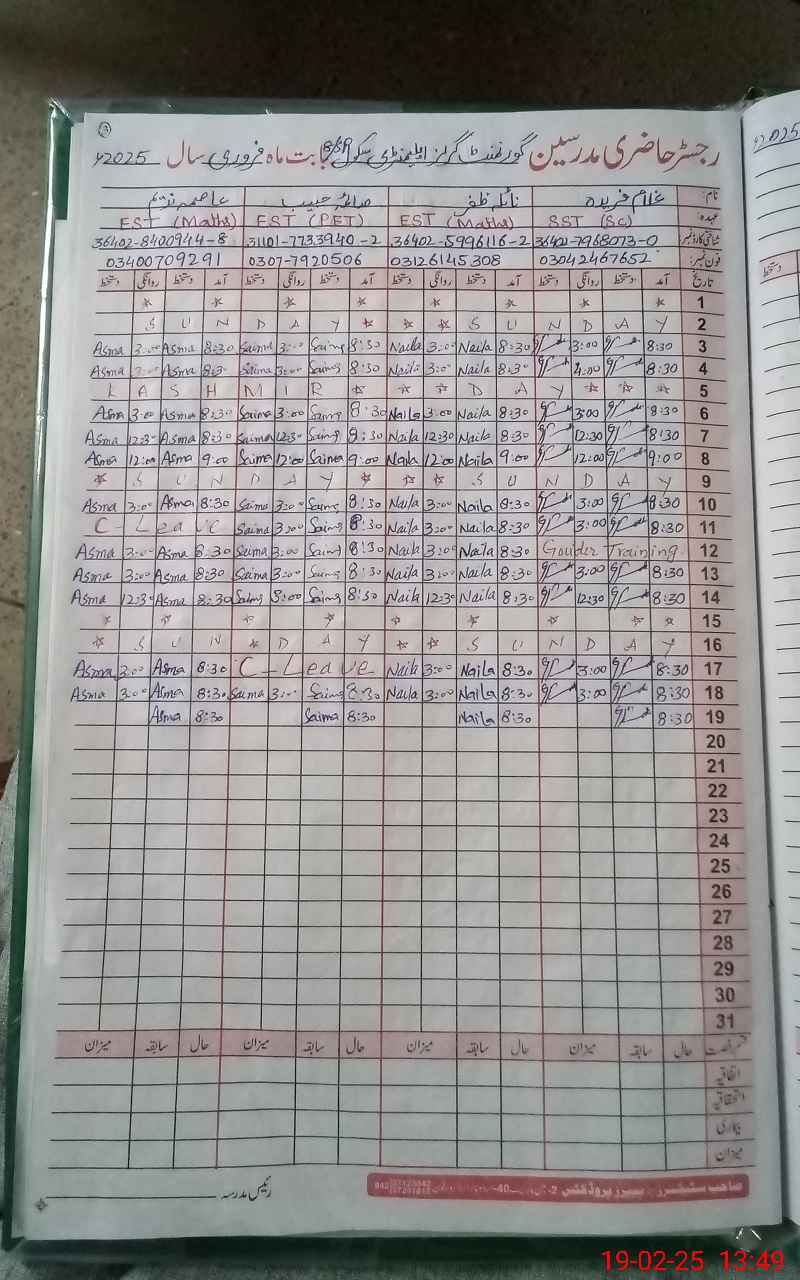 رجسٹر حاضری مدرسین گورنمنٹ گرلز ایلیمنٹری سکول بابت ماہ فروری سال 2025ء
نام: غلام فریدہ نائلہ ظفر صائمہ حبیب عاصمہ ندیم
عہدہ: SST (Sc) EST (Maths) EST (PET) EST (Maths)
شناختی کارڈ نمبر 36402-7968073-0 36402-5996116-2 31101-7733940-2 36402-8400944-8
فون نمبر: 03042467652 03126145308 0307-7920506 03400709291
تاریخ آمد دستخط روانگی دستخط آمد دستخط روانگی دستخط آمد دستخط روانگی دستخط آمد دستخط روانگی دستخط
1
S U N D A Y S U N D A Y 2
Asma 3:00 Asma 8:30 Saima 3:00 Saima 8:30 Naila 3:00 Naila 8:30 3:00 8:30 3
Asma 3:00 Asma 8:30 Saima 3:00 Saima 8:30 Naila 3:00 Naila 8:30 4:00 8:30 4
K A S H M I R D A Y 5
Asma 3:00 Asma 8:30 Saima 3:00 Saima 8:30 Naila 3:00 Naila 8:30 3:00 8:30 6
Asma 12:30 Asma 8:30 Saima 12:30 Saima 8:30 Naila 12:30 Naila 8:30 12:30 8:30 7
Asma 12:00 Asma 9:00 Saima 12:00 Saima 9:00 Naila 12:00 Naila 9:00 12:00 9:00 8
S U N D A Y S U N D A Y 9
Asma 3:00 Asma 8:30 Saima 3:00 Saima 8:30 Naila 3:00 Naila 8:30 3:00 8:30 10
C-Leave Saima 3:00 Saima 8:30 Naila 3:00 Naila 8:30 3:00 8:30 11
Asma 3:00 Asma 8:30 Saima 3:00 Saima 8:30 Naila 3:00 Naila 8:30 Gouider Training 12
Asma 3:00 Asma 8:30 Saima 3:00 Saima 8:30 Naila 3:00 Naila 8:30 3:00 8:30 13
Asma 12:30 Asma 8:30 Saima 8:00 Saima 8:30 Naila 12:30 Naila 8:30 12:30 8:30 14
15
S U N D A Y S U N D A Y 16
Asma 3:00 Asma 8:30 C-Leave Naila 3:00 Naila 8:30 3:00 8:30 17
Asma 3:00 Asma 8:30 Saima 3:00 Saima 8:30 Naila 3:00 Naila 8:30 3:00 8:30 18
Asma 8:30 Saima 8:30 Naila 8:30 8:30 19
20
21
22
23
24
25
26
27
28
29
30
31
قسم رخصت حال سابقہ میزان حال سابقہ میزان حال سابقہ میزان حال سابقہ میزان
اتفاقیہ
استحقاقیہ
بیماری
میزان
رئیس مدرسہ
19-02-25 13:49